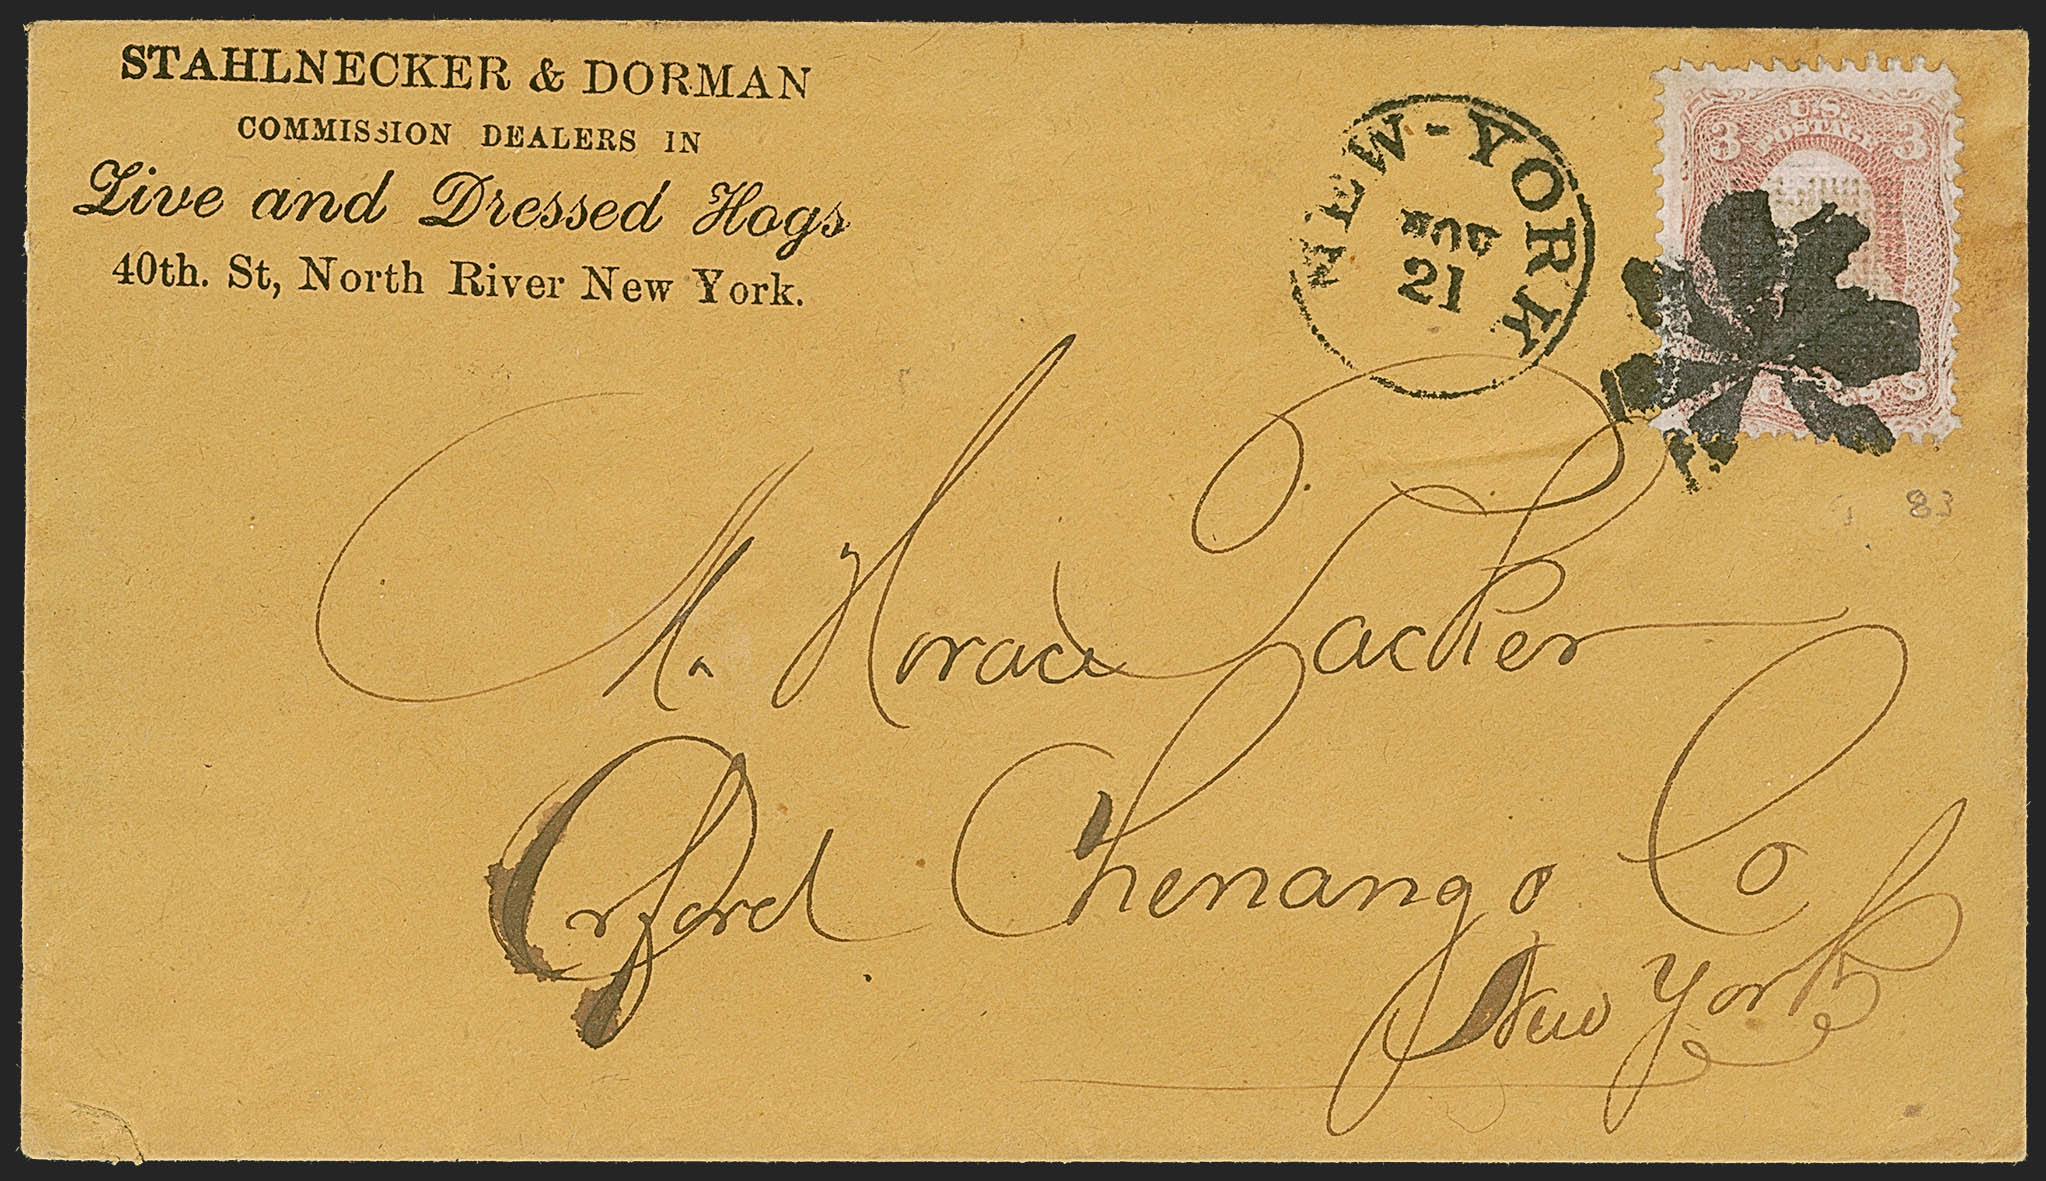 STAHLNECKER & DORMAN
COMMISSION DEALERS IN
Live and Dressed Hogs
40th. St, North River New York.
NEW-YORK
21
U.S.
POSTAGE
3 3
Mr Horace Packer
Oxford Chenango Co
New York
83